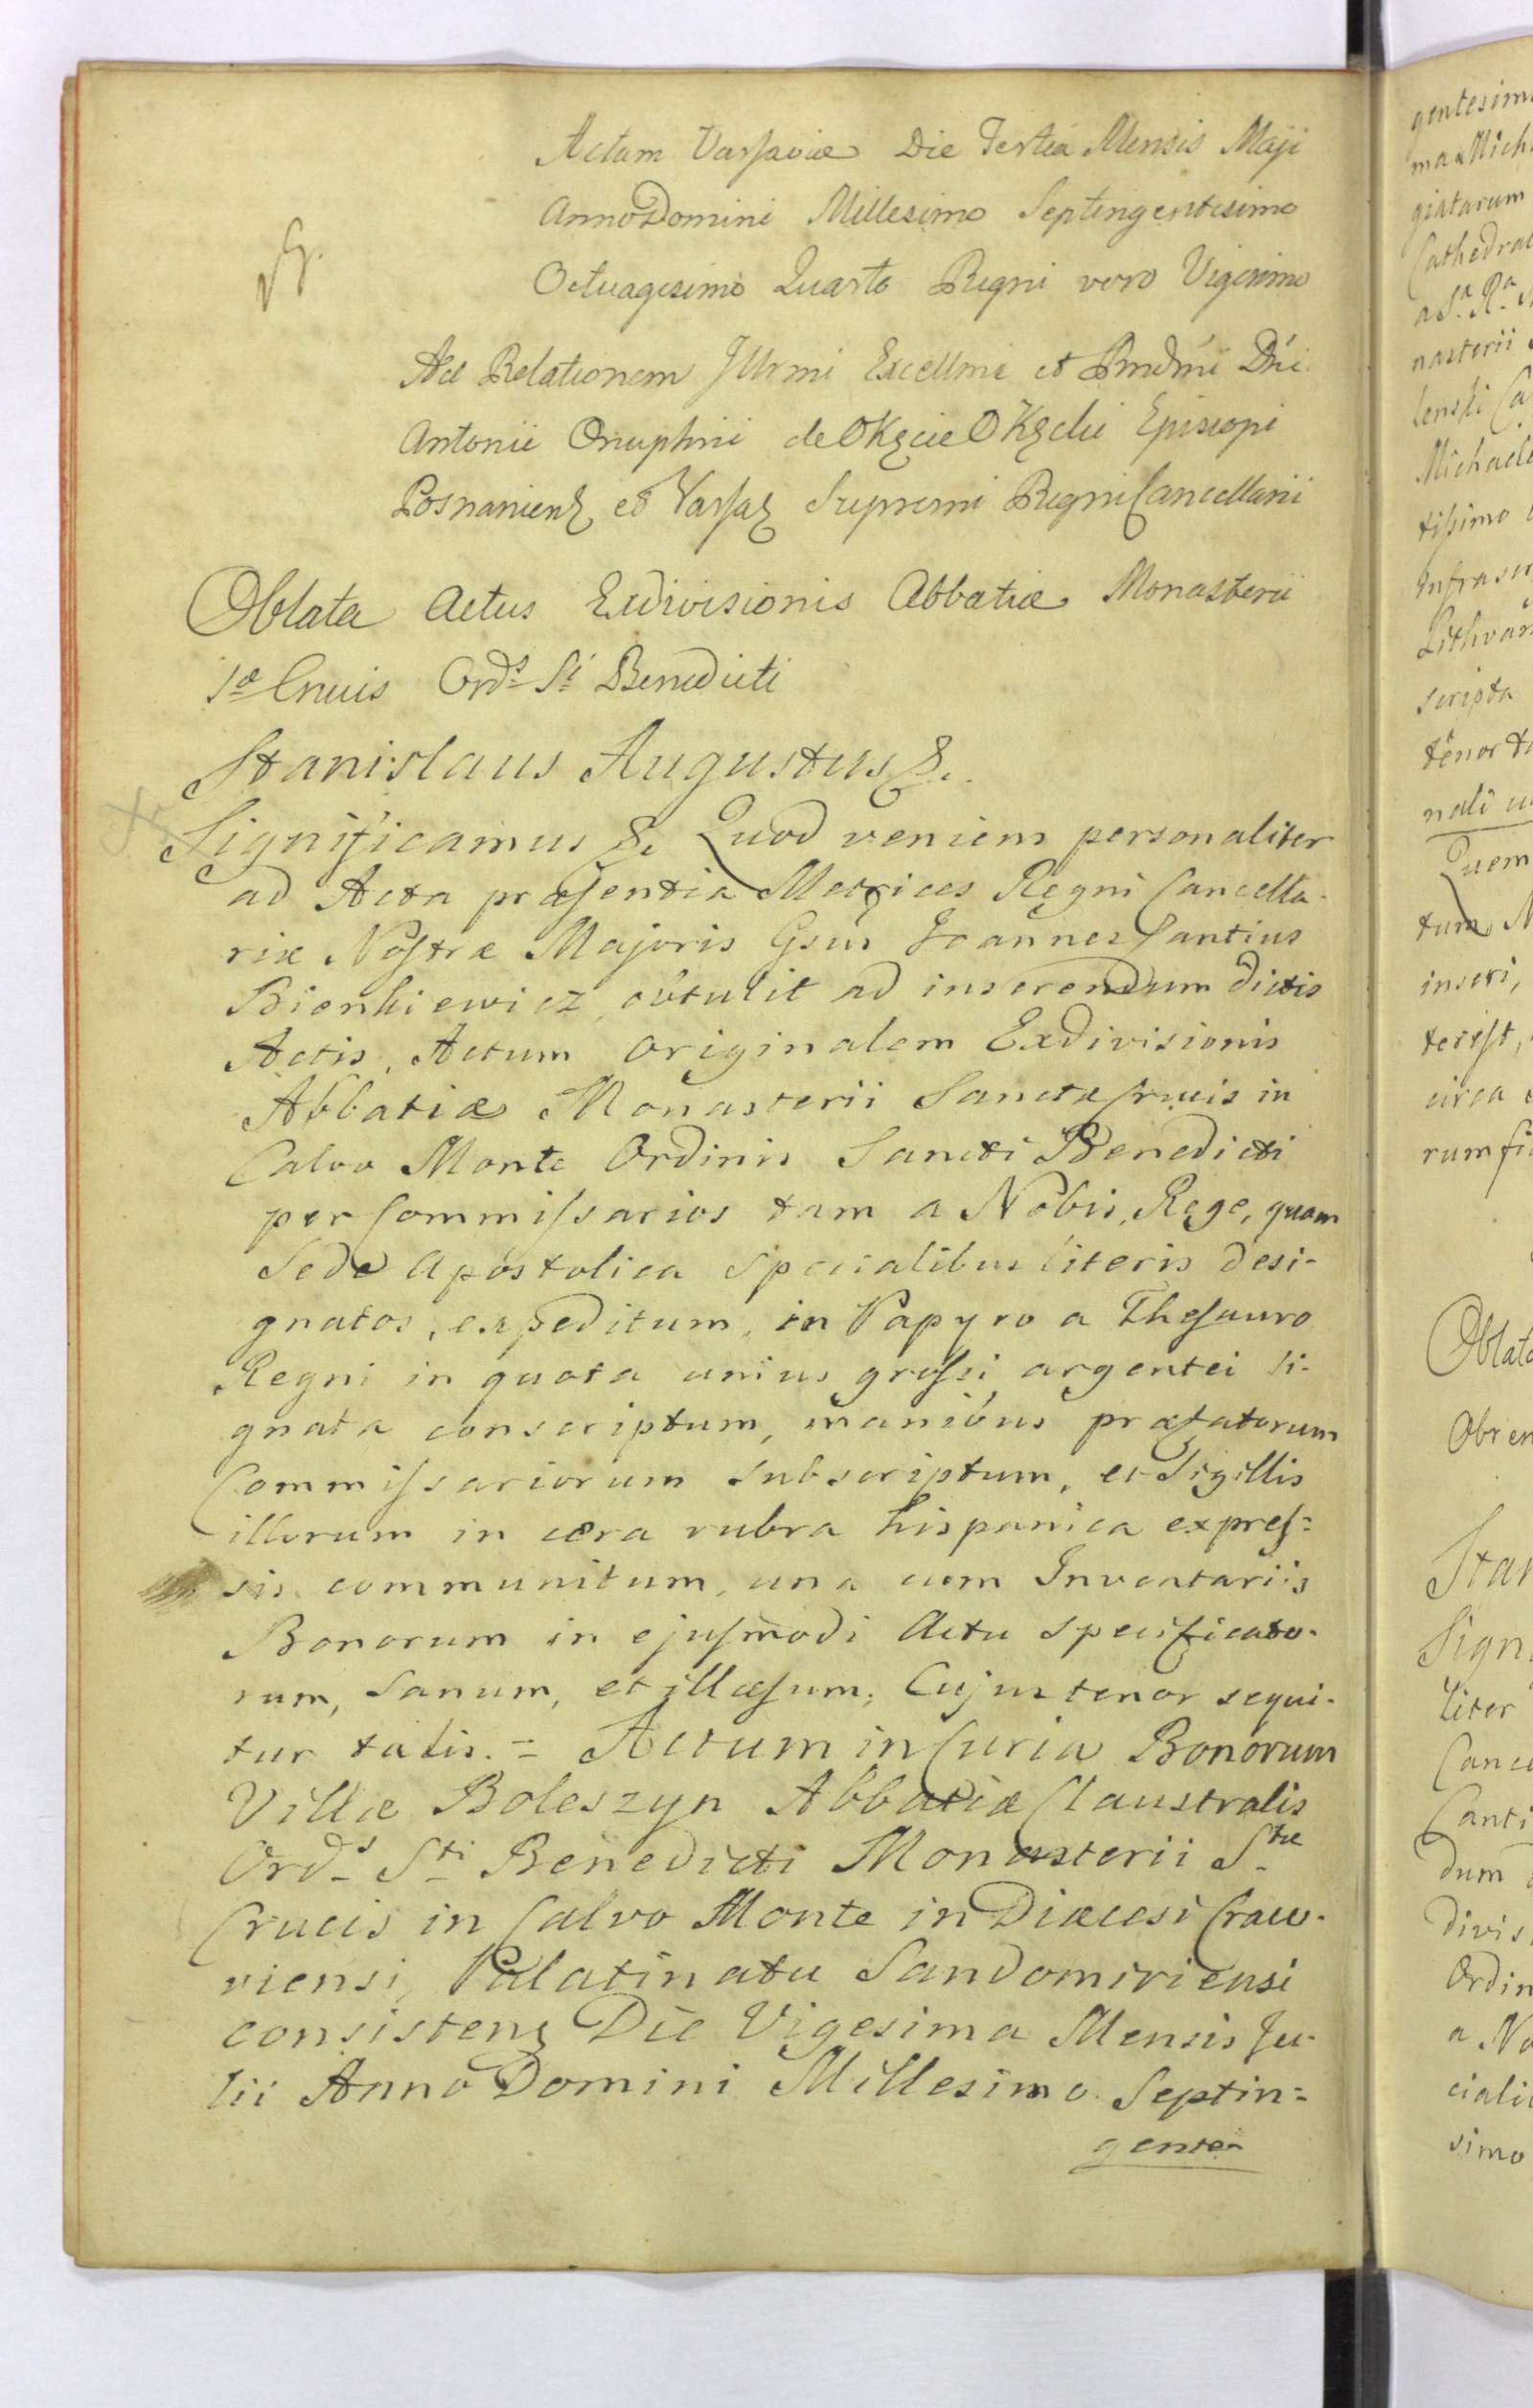 Actum Varsaviæ Die Tertia Mensis Maji
Anno Domini Millesimo Septingentesimo
Octuagesimo Quarto Regni vero Vigesimo
Ad Relationem Illrmi Excellmi et Rmdmi Dni
Antonii Onuphrii de Okęcie Okęcki Episcopi
Posnaniens et Varsav Supremi Regni Cancellarii
Oblata Actus Exdivisionis Abbatiæ Monasterii
Sæ Crucis Ords Si Benedicti
Stanislaus Augustus &.
Significamus &. Quod veniens personaliter
ad Acta præsentia Metrices Regni Cancella-
riæ Nostræ Majoris Gsus Joannes Cantius
Bienkiewicz, obtulit ad inserendum dictis
Actis, Actum originalem Exdivisionis
Abbatiæ Monasterii Sanctæ Crucis in
Calvo Monte Ordinis Sancti Benedicti
per Commissarios tam a Nobis, Rege, quam
Sede Apostolica specialibus literis desi-
gnatos, expeditum, in Papyro a Thesauro
Regni in quota unius grossi argentei si-
gnata conscriptum, manibus præfatorum
Commissariorum subscriptum, et Sigillis
illorum in cæra rubra hispanica expres=
sis communitum, una cum Inventariis
Bonorum in ejusmodi Actu specificato-
rum, Sanum, et illæsum; Cujus tenor sequi-
tur talis.= Actum in Curia Bonorum
Villæ Boleszyn Abbatiæ Claustralis
Ords Sti Benedicti Monasterii Stæ
Crucis in Calvo Monte in Diæcesi Craco-
viensi, Palatinatu Sandomiriensi
consistens Die Vigesima Mensis Ju-
lii Anno Domini Millesimo Septin=
gente-